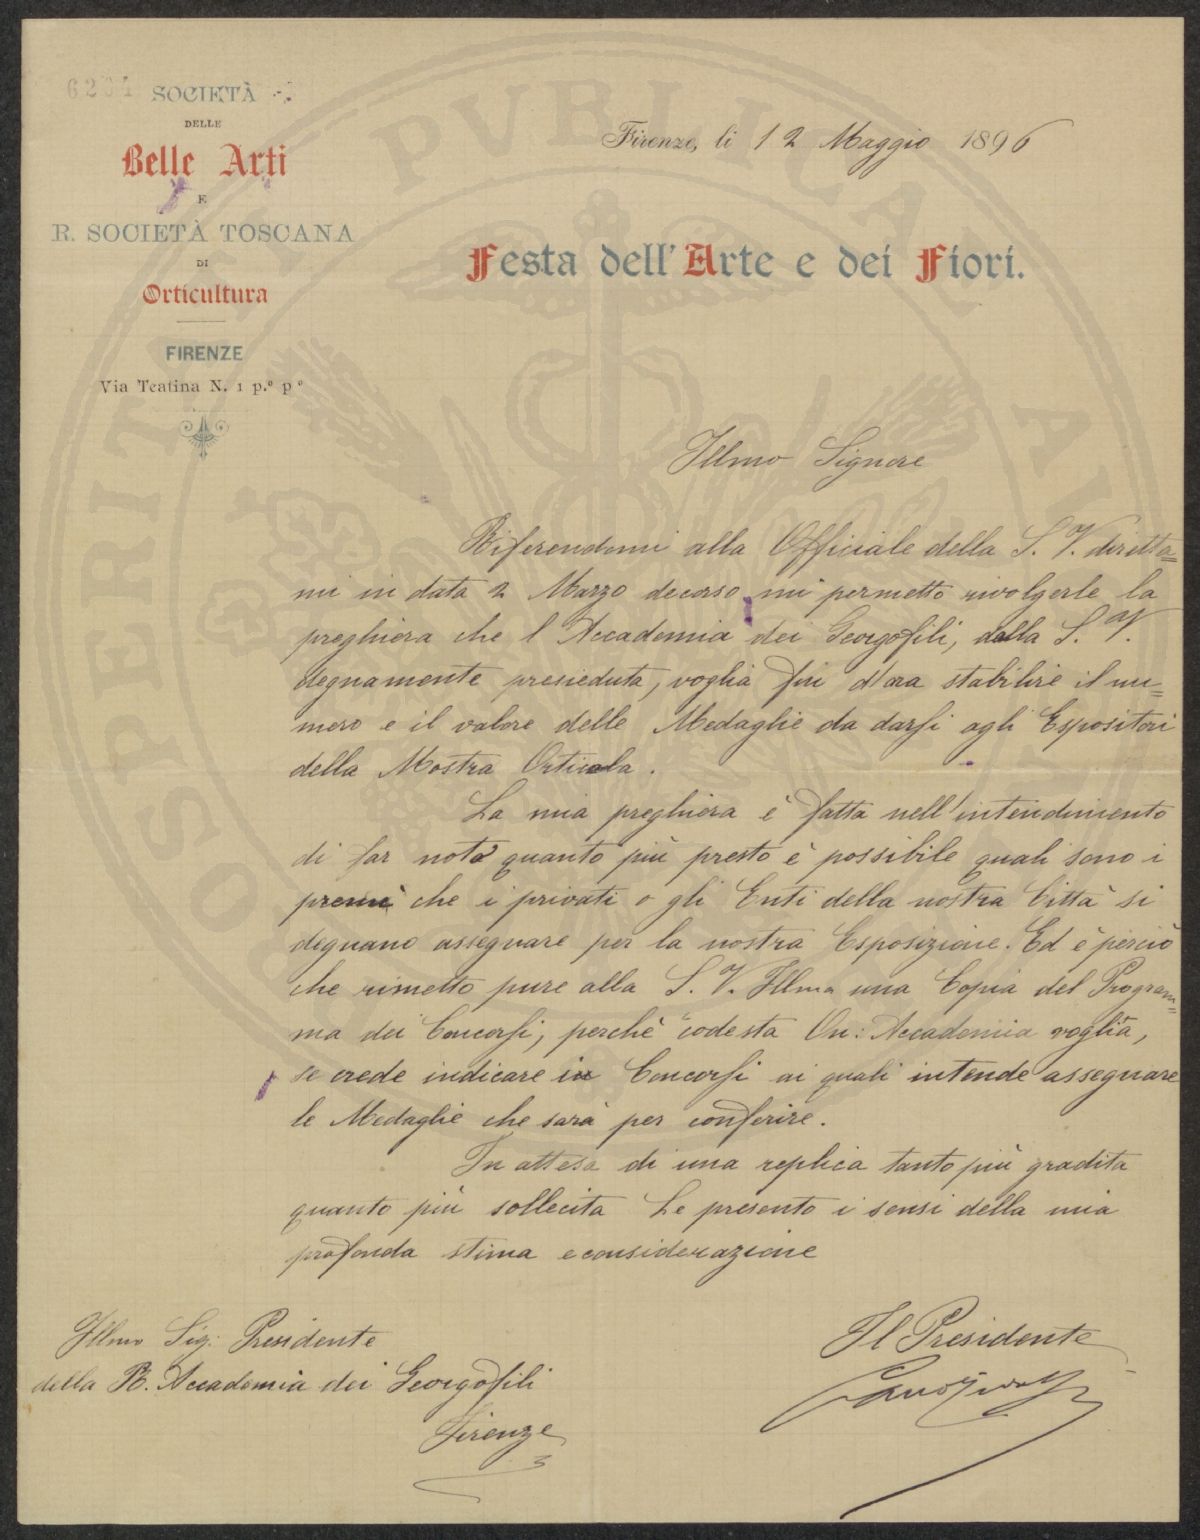 SOCIETÀ
DELLE
Belle Arti
E
R. SOCIETÀ TOSCANA
DI
Orticultura
FIRENZE
Via Teatina N. 1 p.º pº
Firenze, li 12 Maggio 1896
Festa dell'Arte e dei Fiori.
Illmo Signore
Riferendomi alla Officiale della S. V. diretta=
mi in data 2 Marzo decorso mi permetto rivolgerle la
preghiera che l'Accademia dei Georgofili, dalla S. V.
degnamente presieduta, voglia fin d'ora stabilire il nu=
mero e il valore delle Medaglie da darsi agli Espositori
della Mostra Orticola.
La mia preghiera è fatta nell'intendimento
di far noto quanto più presto è possibile quali sono i
premi che i privati o gli Enti della nostra Città si
degnano assegnare per la nostra Esposizione. Ed è perciò
che rimetto pure alla S. V. Illma una Copia del Program=
ma dei Concorsi, perchè codesta On: Accademia voglia,
se crede indicare i Concorsi ai quali intende assegnare
le Medaglie che sarà per conferire.
In attesa di una replica tanto più gradita
quanto più sollecita Le presento i sensi della mia
profonda stima e considerazione
Il Presidente
Illmo Sig: Presidente
della R. Accademia dei Georgofili
Firenze
PVBLICAE
PROSPERITATI